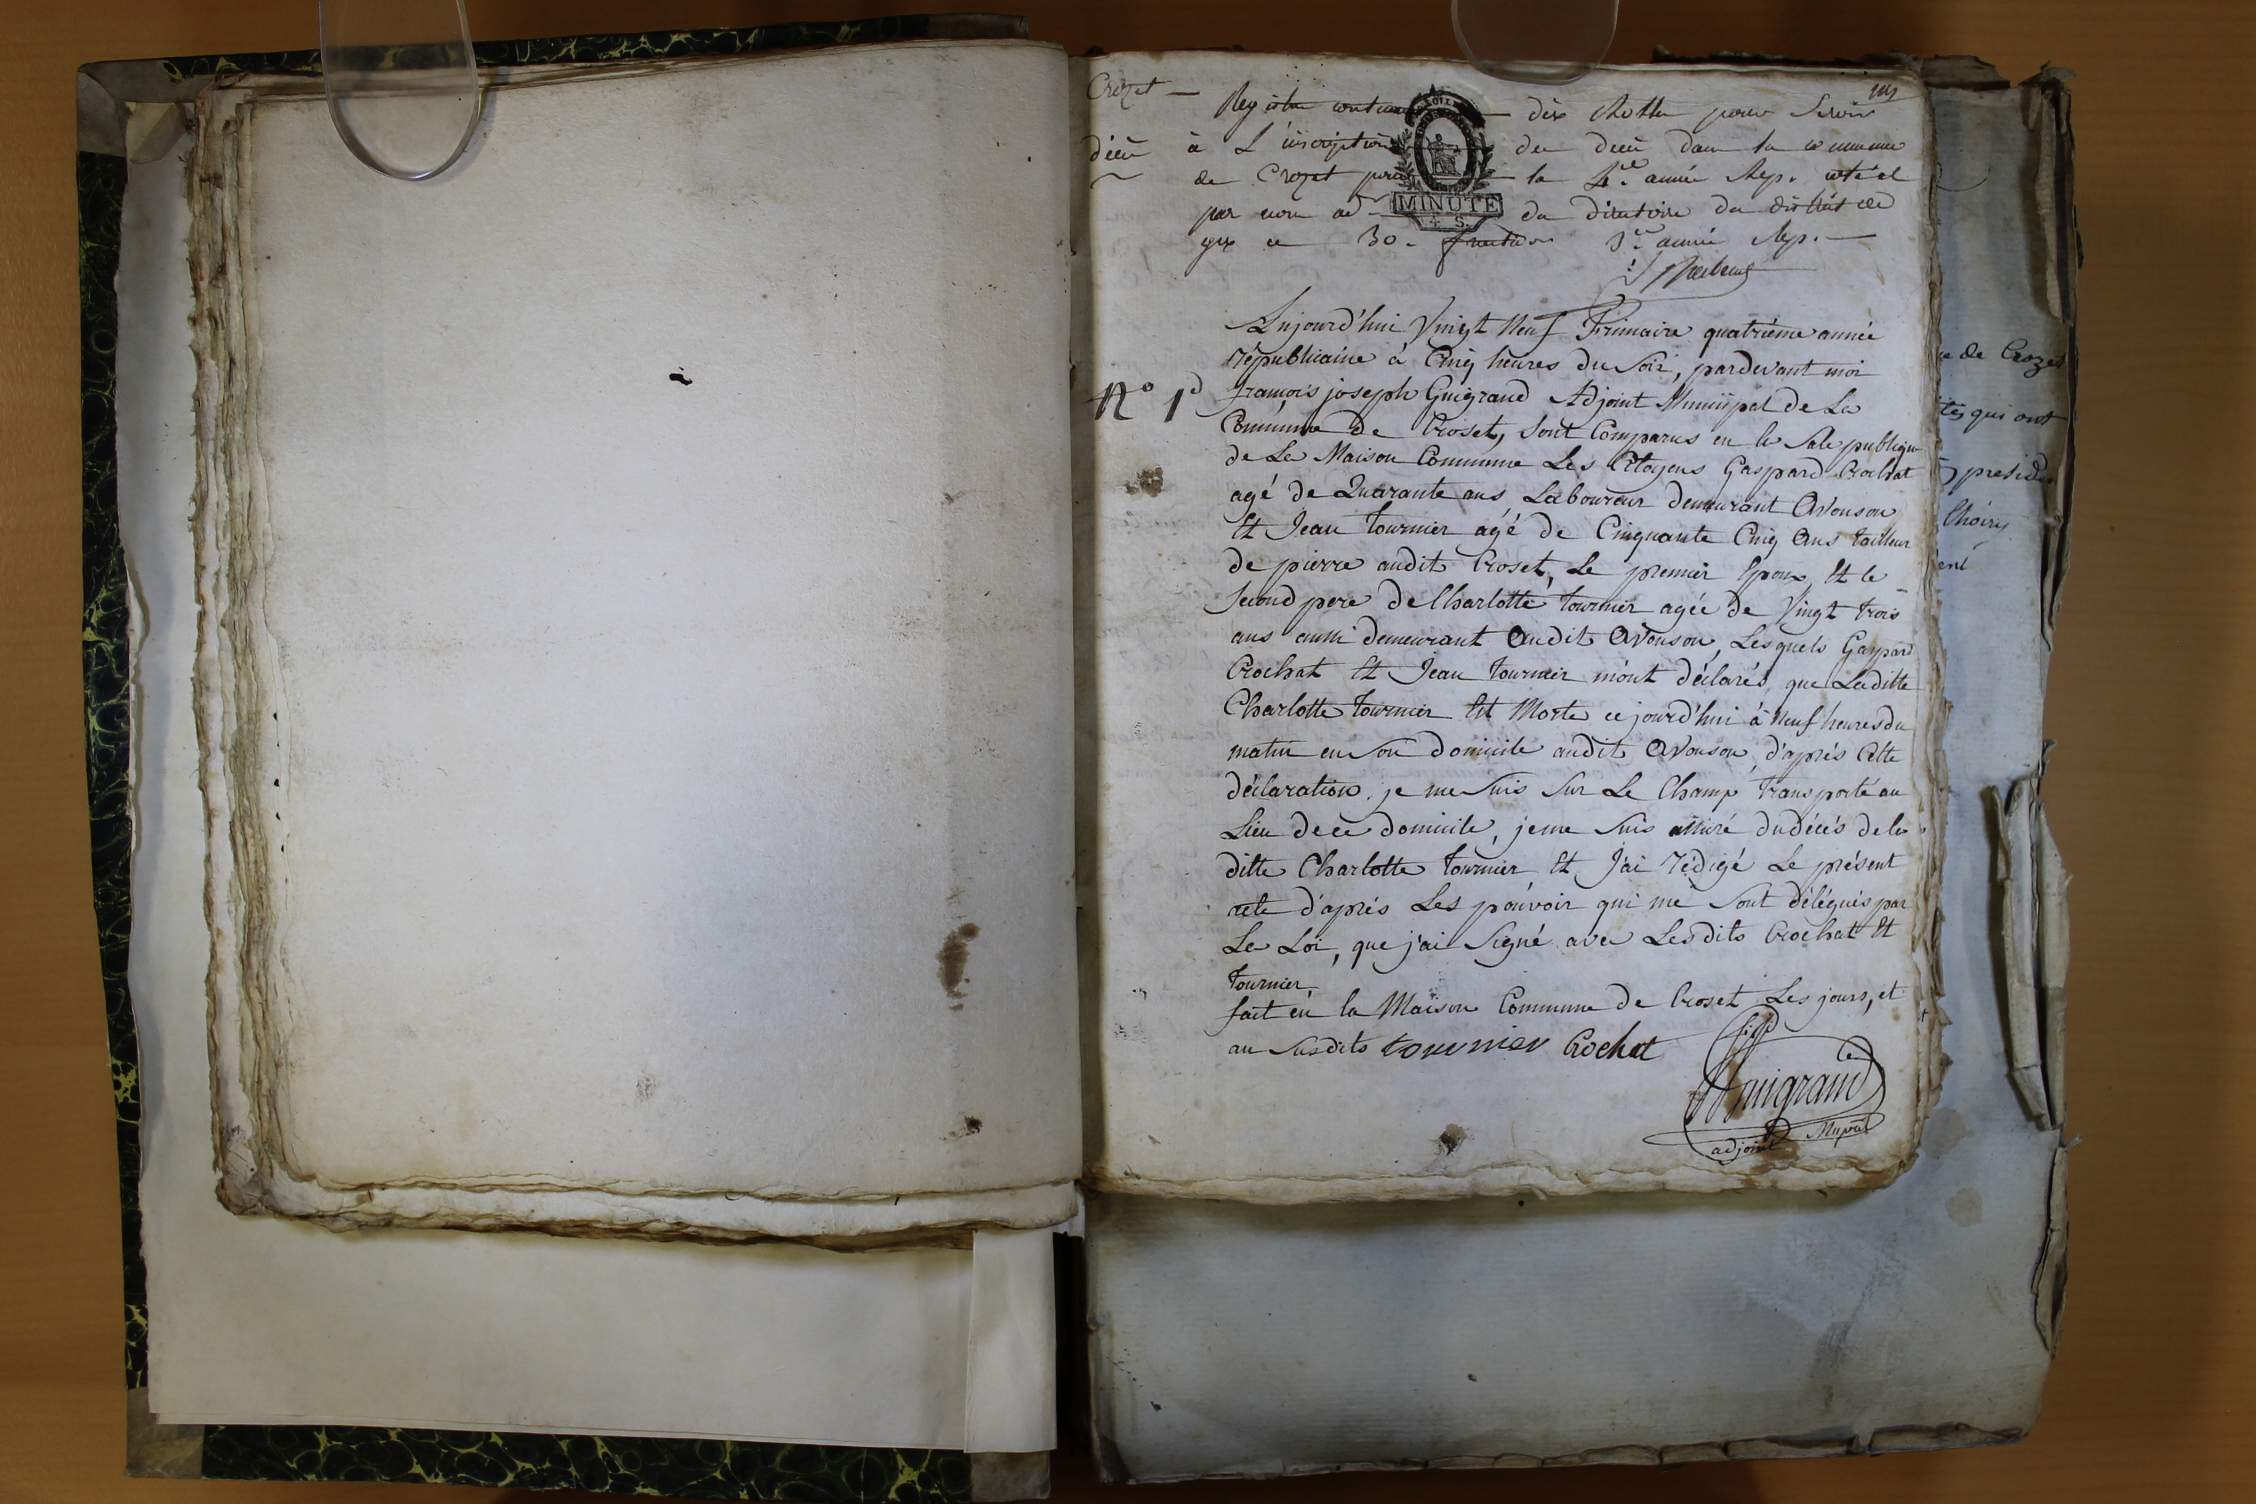 Crozet —
Registre contenant dix rolles pour servir
décès à L'inscription des décès dans la commune
de Crozet pour la 4e. année Rep. coté et
par nous ad du directoire du district de
gex ce 30. fructidor 3e. année Rep. —
MINUTE
4 S.
Aujourd'hui Vingt Neuf Frimaire quatriéme année
républicaine à Cinq heures du Soir, pardevant moi
N° 1
francois joseph Guigrand Adjoint Municipal de La
Commune de Croset, Sont Comparus en la Sale publique
de La Maison Commune Les Citoyens Gaspard Crochat
agé de Quarante ans Laboureur demeurant Avouson
Et Jean tournier agé de Cinquante Cinq Ans tailleur
de pierre audit Croset, Le premier Epoux Et le
Second pere de Charlotte tournier agée de Vingt trois
ans aussi demeurant Audit Avouson, Lesquels Gaspard
Crochat Et Jean tournier m'ont déclarés que Laditte
Charlotte tournier Est Morte ce jourd'hui à Neuf heures du
matin en Son domicile audit Avouson, d'aprés Cette
déclaration je me Suis Sur Le Champ transporté au
Lieu de ce domicile, je me Suis assuré du décés de la
ditte Charlotte tournier Et J'ai rédigé Le présent
acte d'aprés Les pouvoir qui me Sont délégués par
La Loi, que j'ai Signé avec Lesdits Crochat Et
tournier
fait en la Maison Commune de Croset Les jours, et
an Susdits tournier Crochat
Guigrand
adjoint
e de Crozet
tes qui ont
presid